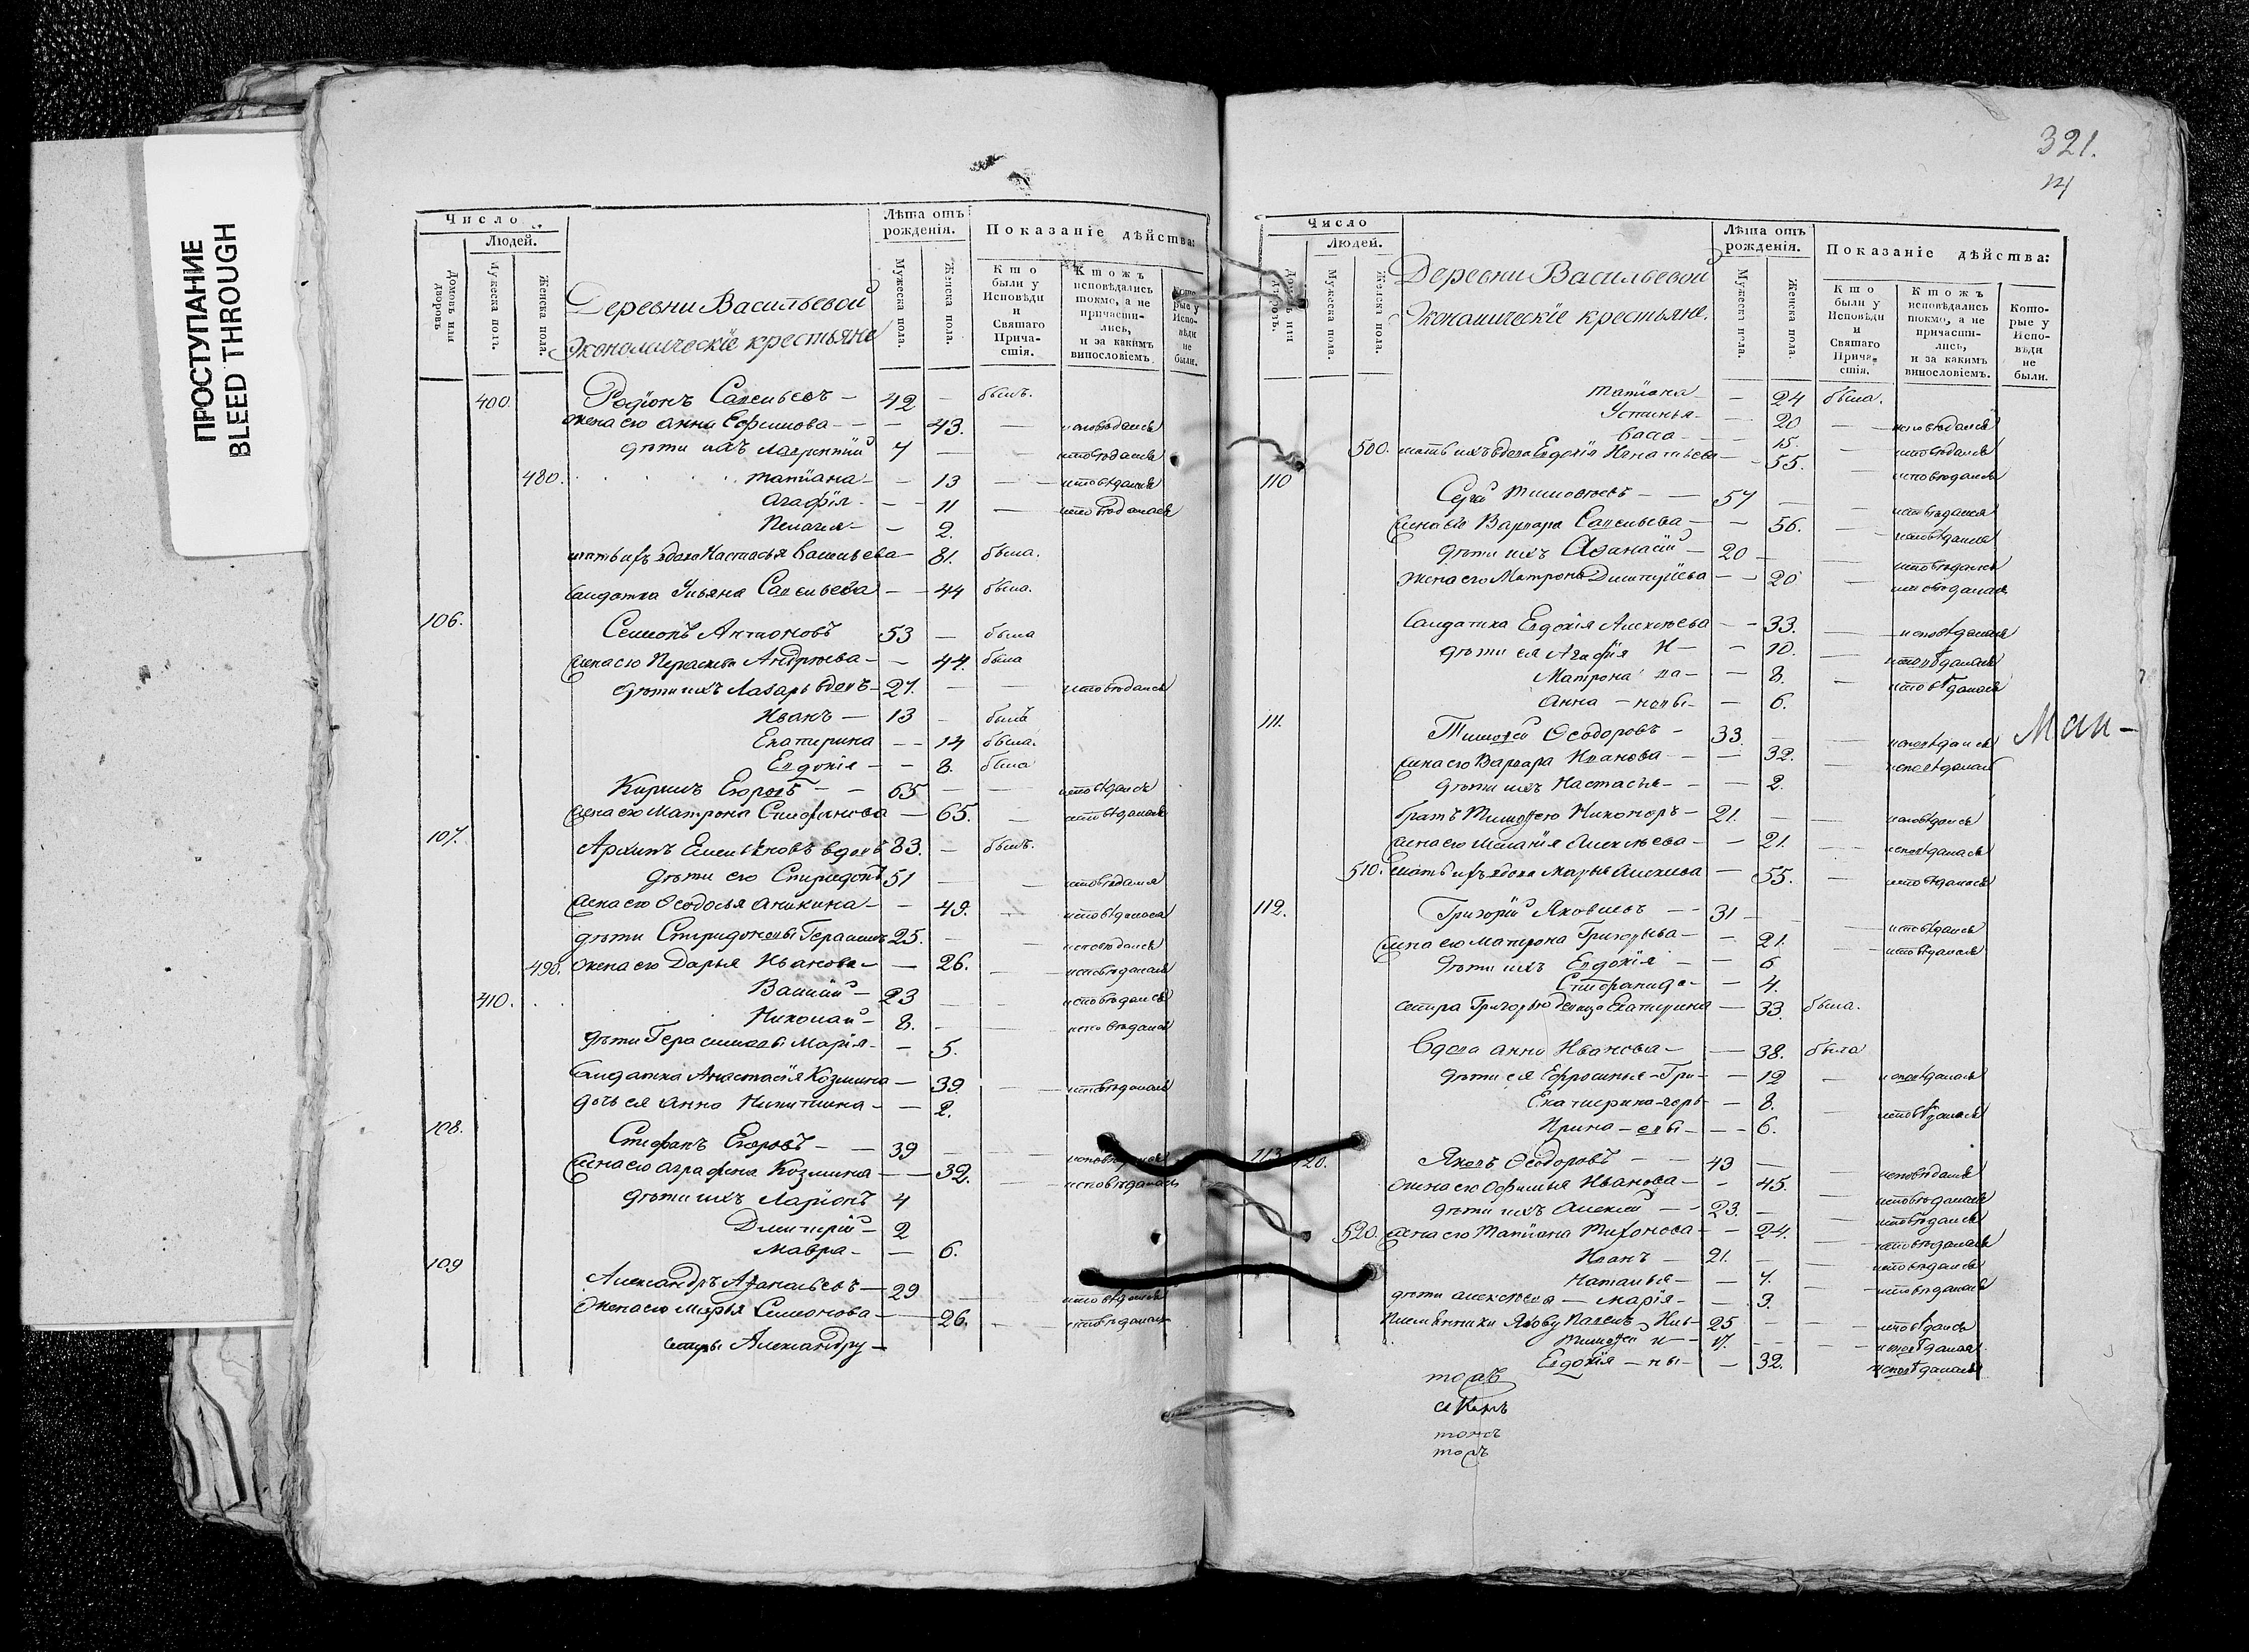 ПРОСТУПАНИЕ
BLEED THROUGH
Число
Людей.
Домовъ или дворовъ
Мужеска полa.
Женска пола.
Деревни Васильевой
Экономическiе крестьяне
Лѣта отъ рожденiя.
Мужеска пола.
Женска пола.
Показанiе дѣйства:
Кто были у Исповѣди и Святаго Прича-стiя.
Ктожъ исповѣдались токмо, а не причасти-лись, и за какимъ винословiемъ.
Кото-рые у Испо-вѣди не были.
400. Родiонъ Савельевъ — 42 — былъ.
жена его Анна Ефимова — — 43. — исповѣдалась
дѣти ихъ Лаврентiй 7 — исповѣдался
480. Татiана — — 13 — исповѣдалась
Агафiя — — 11 — исповѣдалась
Пелагея — — 2.
мать ихъ вдова Настасья Васильева — 81. была.
салдатка Ульяна Савельева — — 44 была.
106. Семенъ Антоновъ 53 — была
жена его Парасковья Андреева — — 44. была
дѣти ихъ Лазарь вдовъ — 27. — исповѣдался
Иванъ — 13 — былъ
Екатерина — — 14 была.
Евдокiя — — 8. была
Кирилъ Егоровъ — — 65 — исповѣдался
жена его Матрона Стефанова — 65. — исповѣдалась
107. Архипъ Емельяновъ вдовъ 83. — былъ.
дѣти его Спиридонъ 51 — исповѣдался
жена его Ѳеодосья Аникина — — 49. исповѣдалась
дѣти Спиридоновы Герасимъ 25. — исповѣдался
490. жена его Дарья Иванова — — 26. — исповѣдалась
410. Василiй — 23 — исповѣдался
Николай — 8. — исповѣдался
дѣти Герасимовы Марiя — — 5.
Салдатка Анастасiя Козмина — 39 — исповѣдалась
дочь ея Анна Никитина — — 2.
108. Стефанъ Егоровъ — — 39 — исповѣдался
жена его Аграфена Козмина — — 32. — исповѣдалась
дѣти ихъ Ларiонъ 4
Димитрiй — 2
Мавра — — 6.
109 Александръ Аѳанасьевъ — 29 — исповѣдался
жена его Марья Симонова — 26. — исповѣдалась
сестры Александру —
321.
Число
Людей.
Домовъ или дворовъ.
Мужеска пола.
Женска пола.
Деревни Васильевой
Экономическiе крестьяне.
Лѣта отъ рожденiя.
Мужеска пола.
Женска пола.
Показанiе дѣйства:
Кто были у Исповѣди и Святаго Прича-стiя.
Ктожъ исповѣдались токмо, а не причасти-лись, и за какимъ винословiемъ.
Кото-рые у Испо-вѣди не были.
Татiана — 24 была.
Устинья — — 20 — исповѣдалась
Васса — — 15. — исповѣдалась
500. мать ихъ вдова Евдокiя Игнатьева — 55. — исповѣдалась
110 Сергiй Тимоѳеевъ — — 57 — исповѣдался
жена его Варвара Савельева — — 56. — исповѣдалась
дѣти ихъ Аѳанасiй — 20 — исповѣдался
жена его Матрона Димитрiева — — 20 — исповѣдалась
Салдатка Евдокiя Алексеева — — 33. — исповѣдалась
дѣти ея Агафiя И — — 10. — исповѣдалась
Матрона ва — — 8. — исповѣдалась
Анна — новы — — 6.
111. Тимоѳей Ѳеодоровъ — 33. — исповѣдался Ман-
жена его Варвара Иванова — — 32. исповѣдалась
дѣти ихъ Настасья — — 2.
братъ Тимоѳею Никоноръ — 21. — исповѣдался
жена его Маланiя Алексеева — — 21. — исповѣдалась
510. мать ихъ вдова Марья Алексеева — 55. — исповѣдалась
112. Григорiй Яковлевъ — — 31 — исповѣдался
жена его Матрона Григорьева — — 21. исповѣдалась
дѣти ихъ Евдокiя — — 6
Стефанида — — 4.
сестра Григорью девица Екатерина — 33. была.
Вдова Анна Иванова — — 38. была
дѣти ея Ефросинья — Гри — — 12 — исповѣдалась
Екатерина — горь — 8. исповѣдалась
Ирина — евы — — — 6.
113 420. Яковъ Ѳеодоровъ — — 43 — исповѣдался
жена его Офимья Иванова — — 45. — исповѣдалась
дѣти ихъ Алексей — — 23. — исповѣдался
520. жена его Татiана Тихонова — — 24. — исповѣдалась
Иванъ — 21. — исповѣдался
Наталья — — 7. — исповѣдалась
дѣти Алексеевы — Марiя — — 3.
племянники Якову Павелъ Ива- 25 — исповѣдался
Тимоѳей н — 17. — исповѣдался
Евдокiя — ны — — 32. исповѣдалась